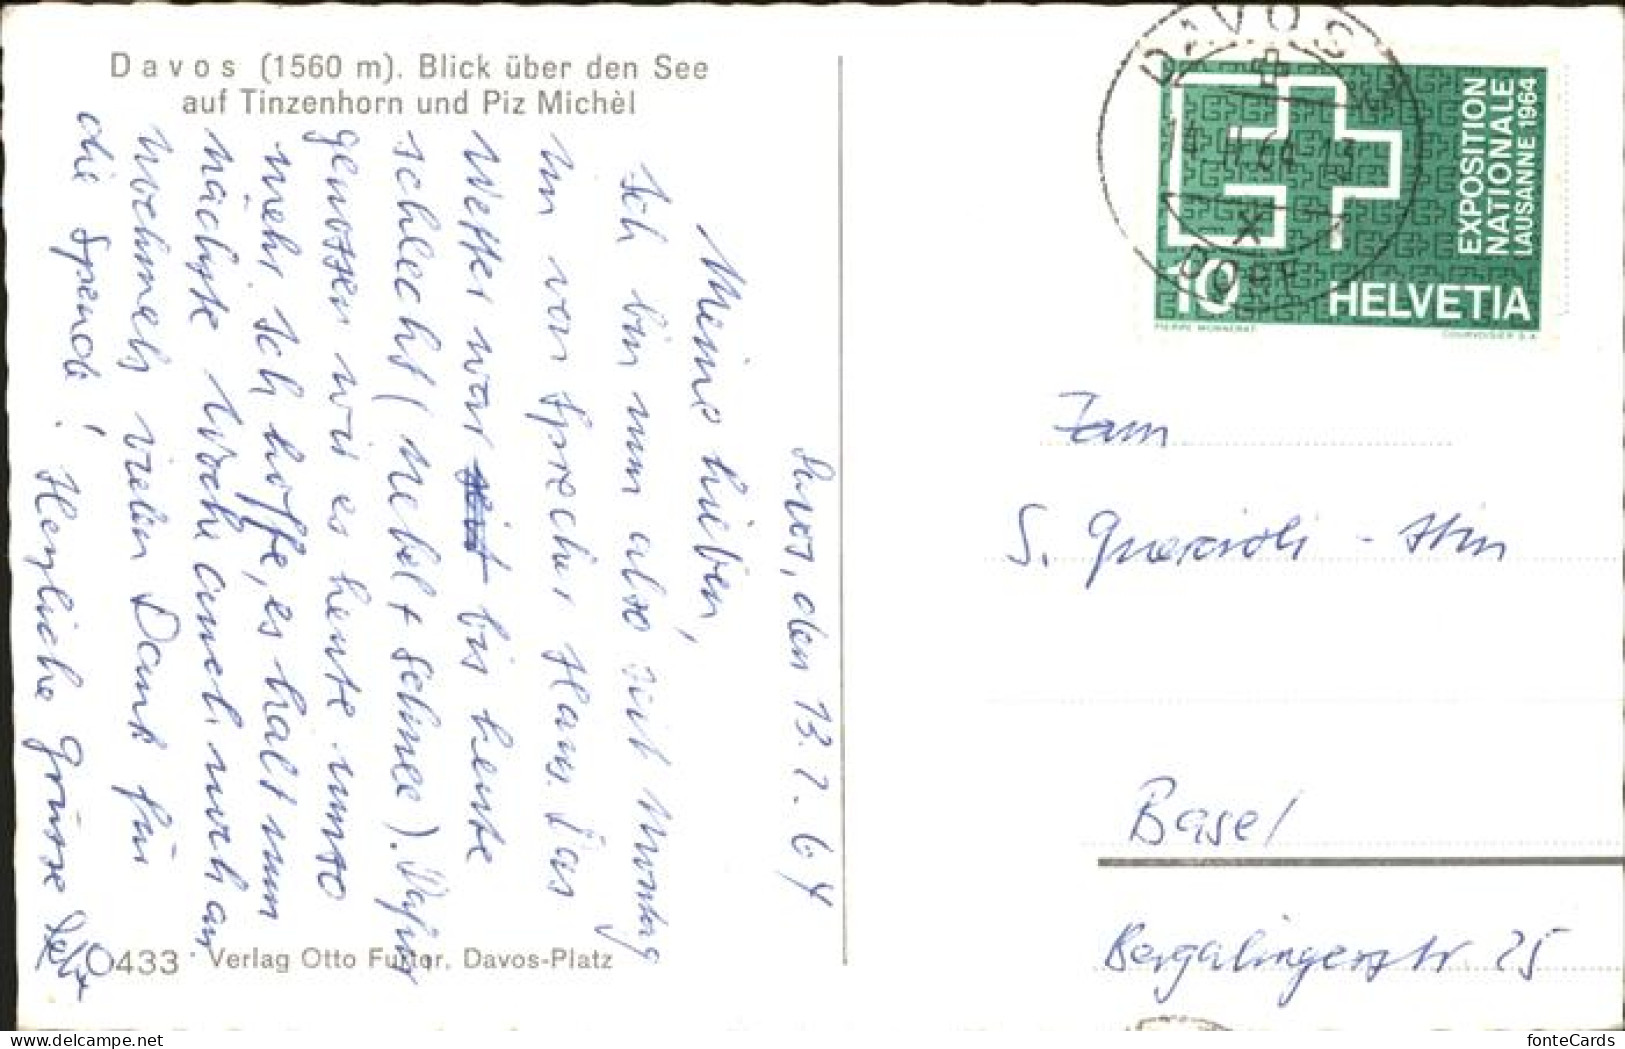 Davos (1560 m). Blick über den See
auf Tinzenhorn und Piz Michèl
Davos, den 13. 2. 64
Meine Lieben,
Ich bin nun also seit Montag
im von Sprecher Haus. Das
Wetter war seit bis heute
schlecht (Nebel + Schnee). Dafür
genossen wir es heute umso
mehr. Ich hoffe, es hält nun
nächste Woche auch noch an
Nochmals vielen Dank für
die Spende! Herzliche Grüsse
10433 Verlag Otto Furter, Davos-Platz
DAVOS
14. 64 13
DORF
EXPOSITION
NATIONALE
LAUSANNE 1964
10 HELVETIA
PIERRE MONNERAT COURVOISIER S.A.
Fam
S.
Basel
Bergalingerstr. 25
delcampe.net
fonteCards